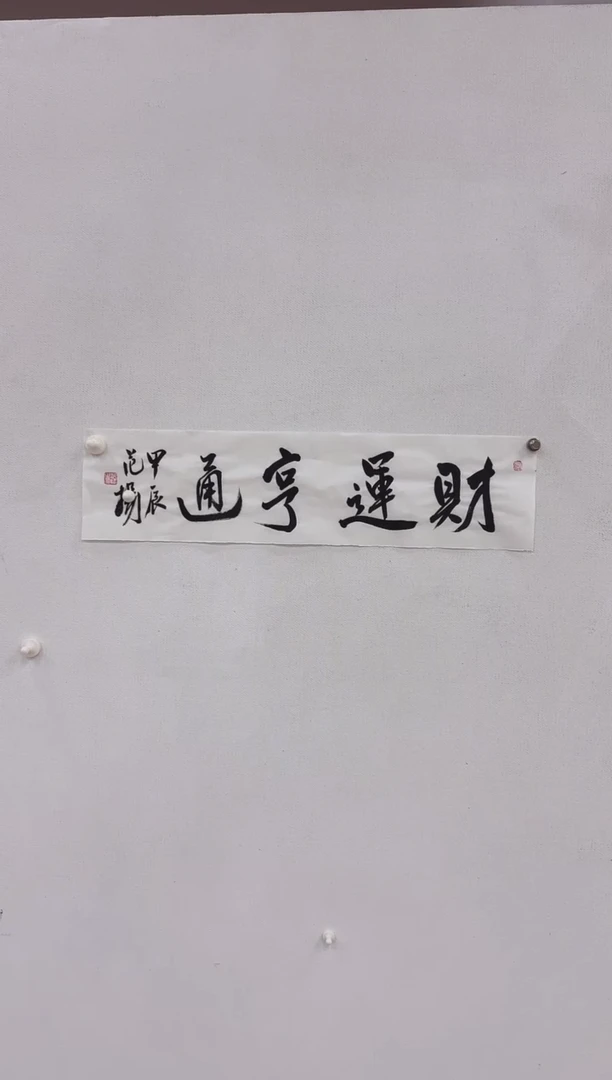 財運亨通
甲辰
范揚